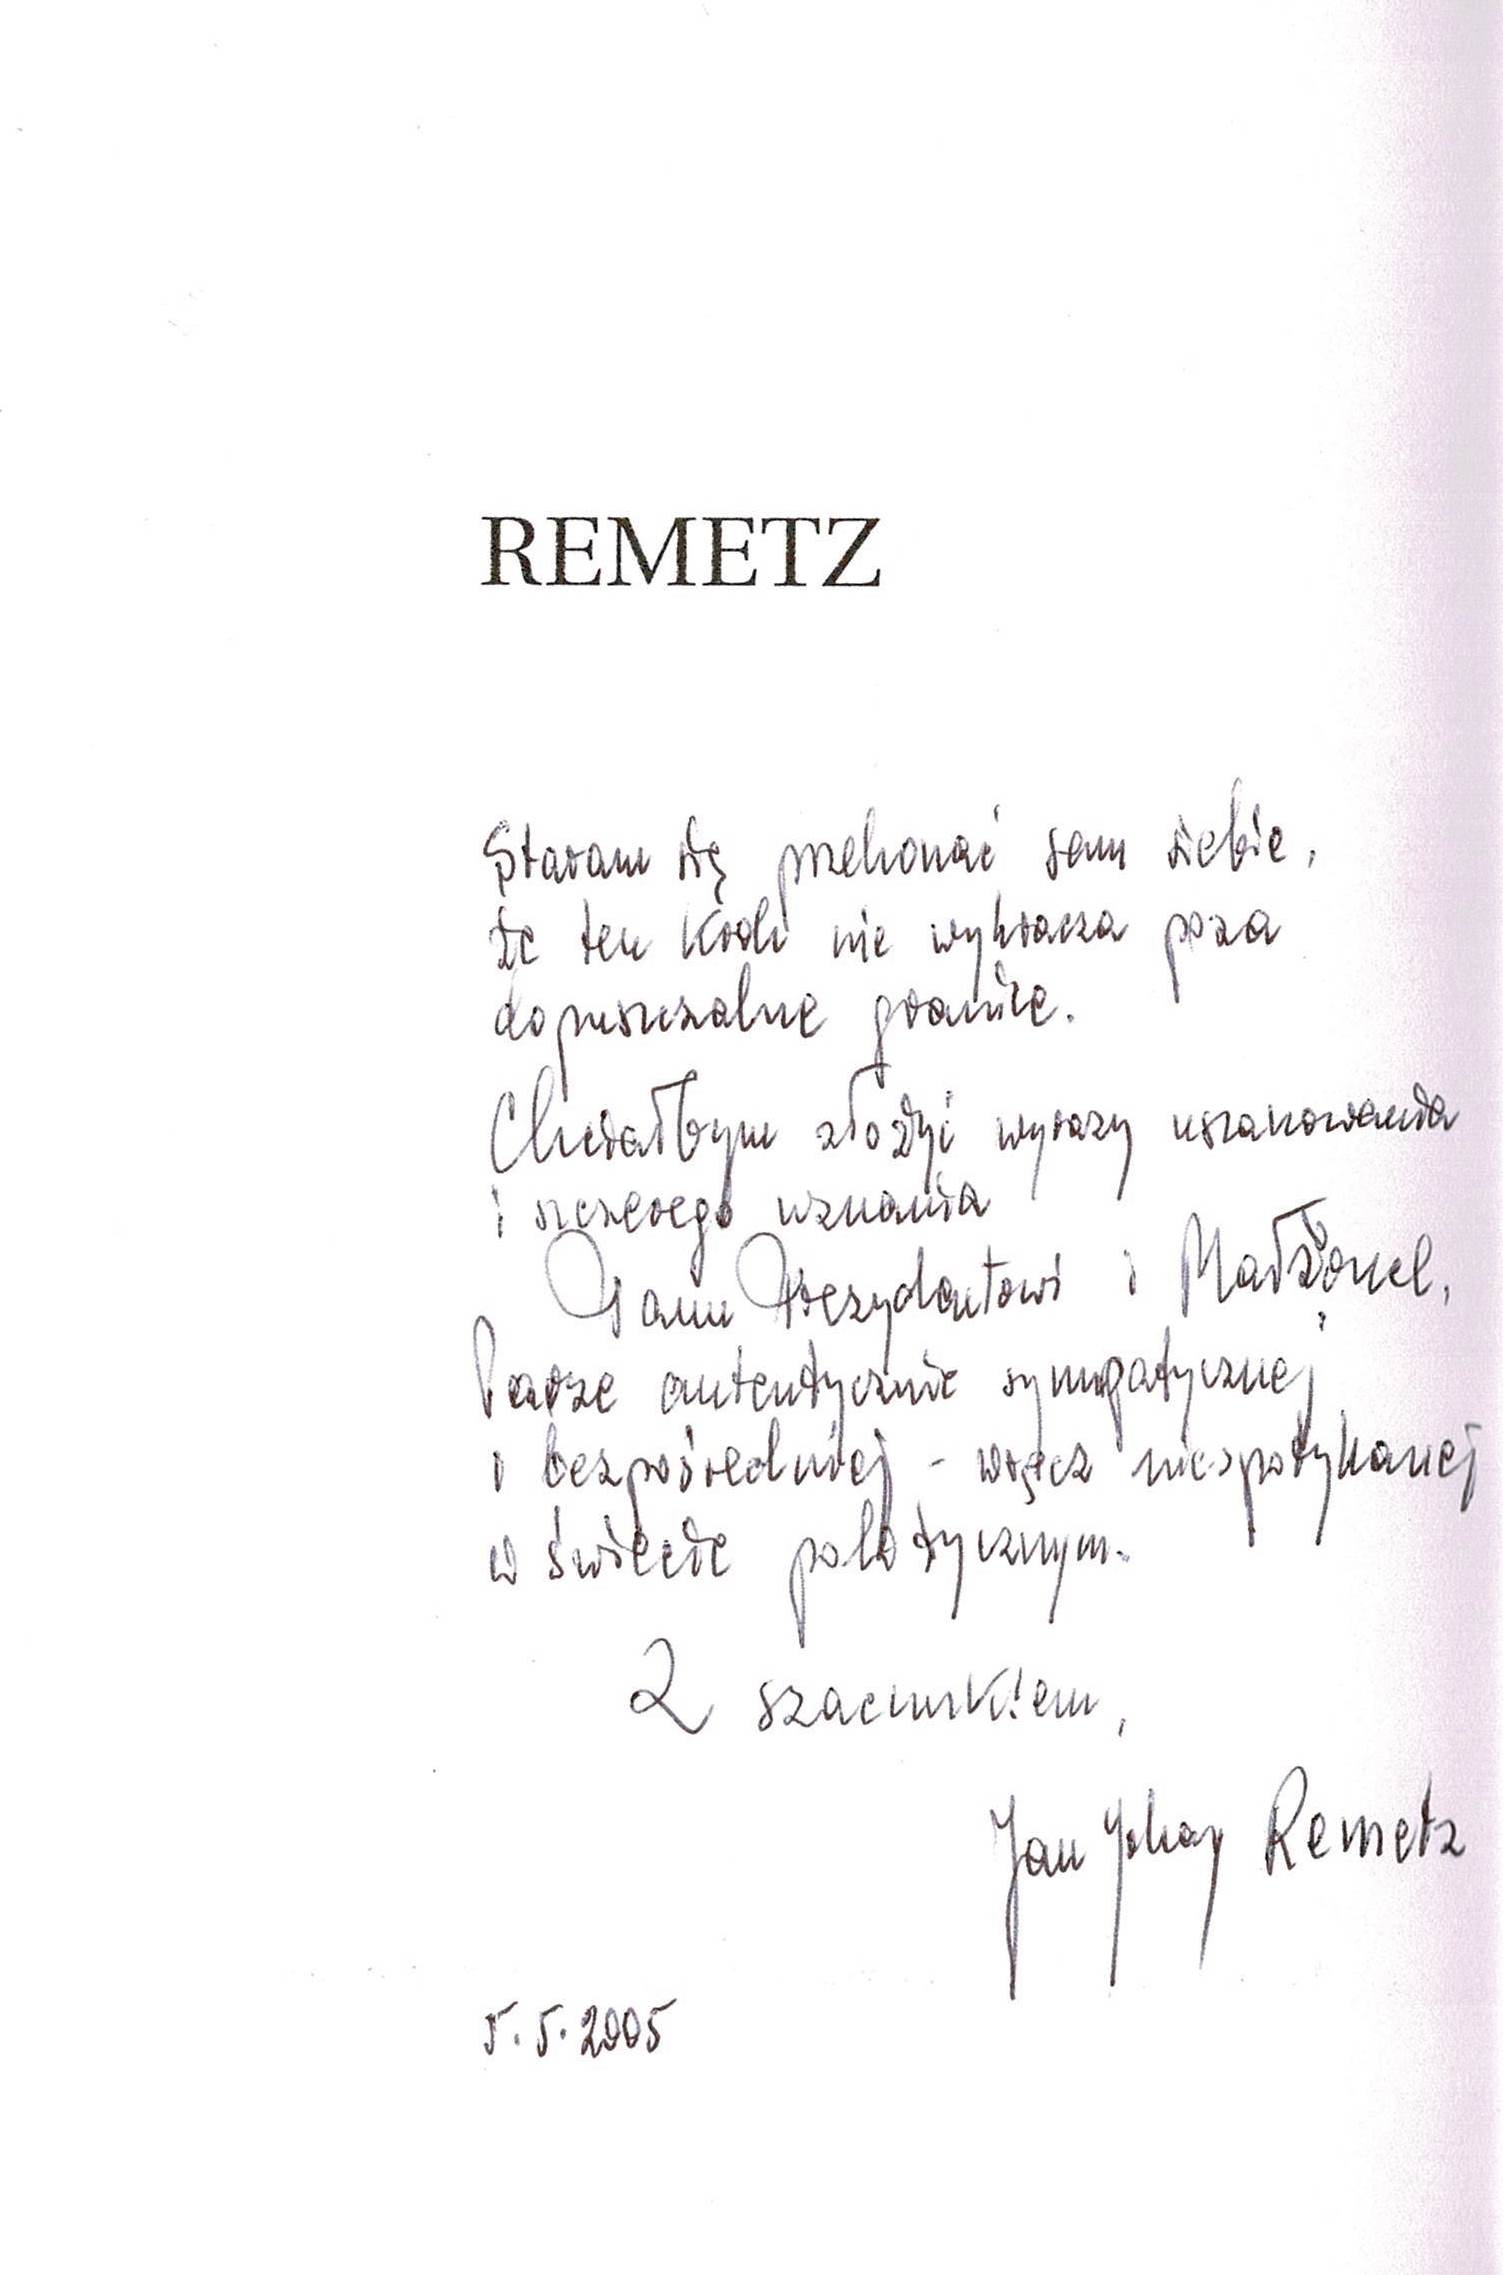 REMETZ
Staram się przekonać sam siebie,
że ten krok nie wykracza poza
dopuszczalne granice.
Chciałbym złożyć wyrazy uszanowania
i szczerego uznania
Panu Prezydentowi i Małżonce,
Parze autentycznie sympatycznej
i bezpośredniej - wręcz niespotykanej
w świecie politycznym.
Z szacunkiem,
Jan Remetz
5.5.2005